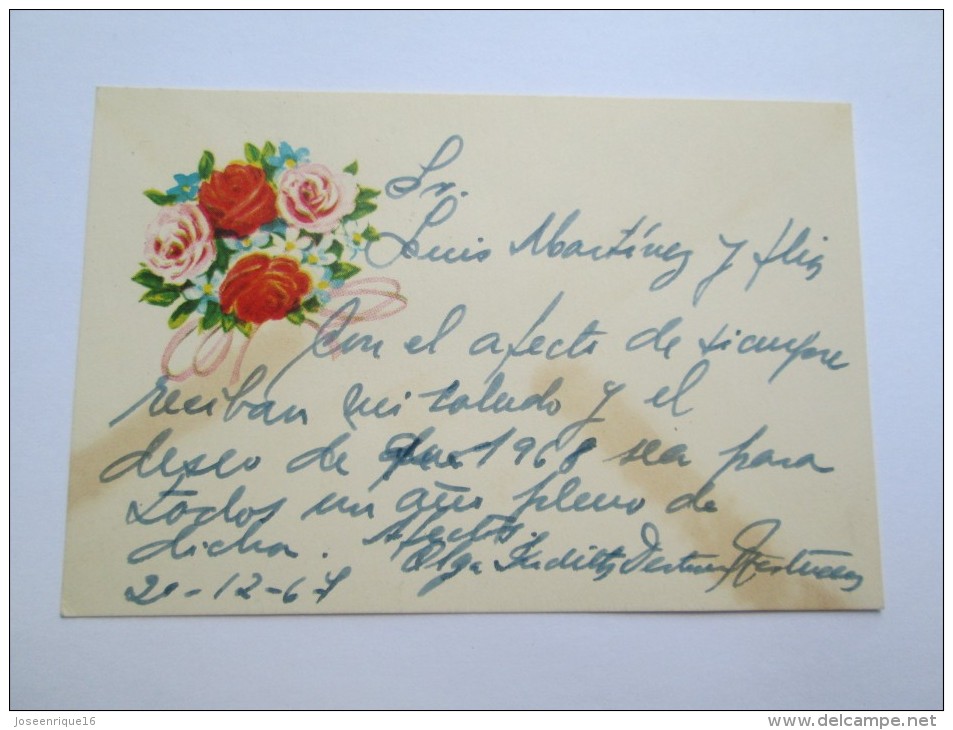 Sr.
Luis Martínez y flia
Con el afecto de siempre
reciban mi saludo y el
deseo de que 1968 sea para
todos un año pleno de
dicha. Afectos.
Olga Judith
20-12-67
Joseenrique16
www.delcampe.net